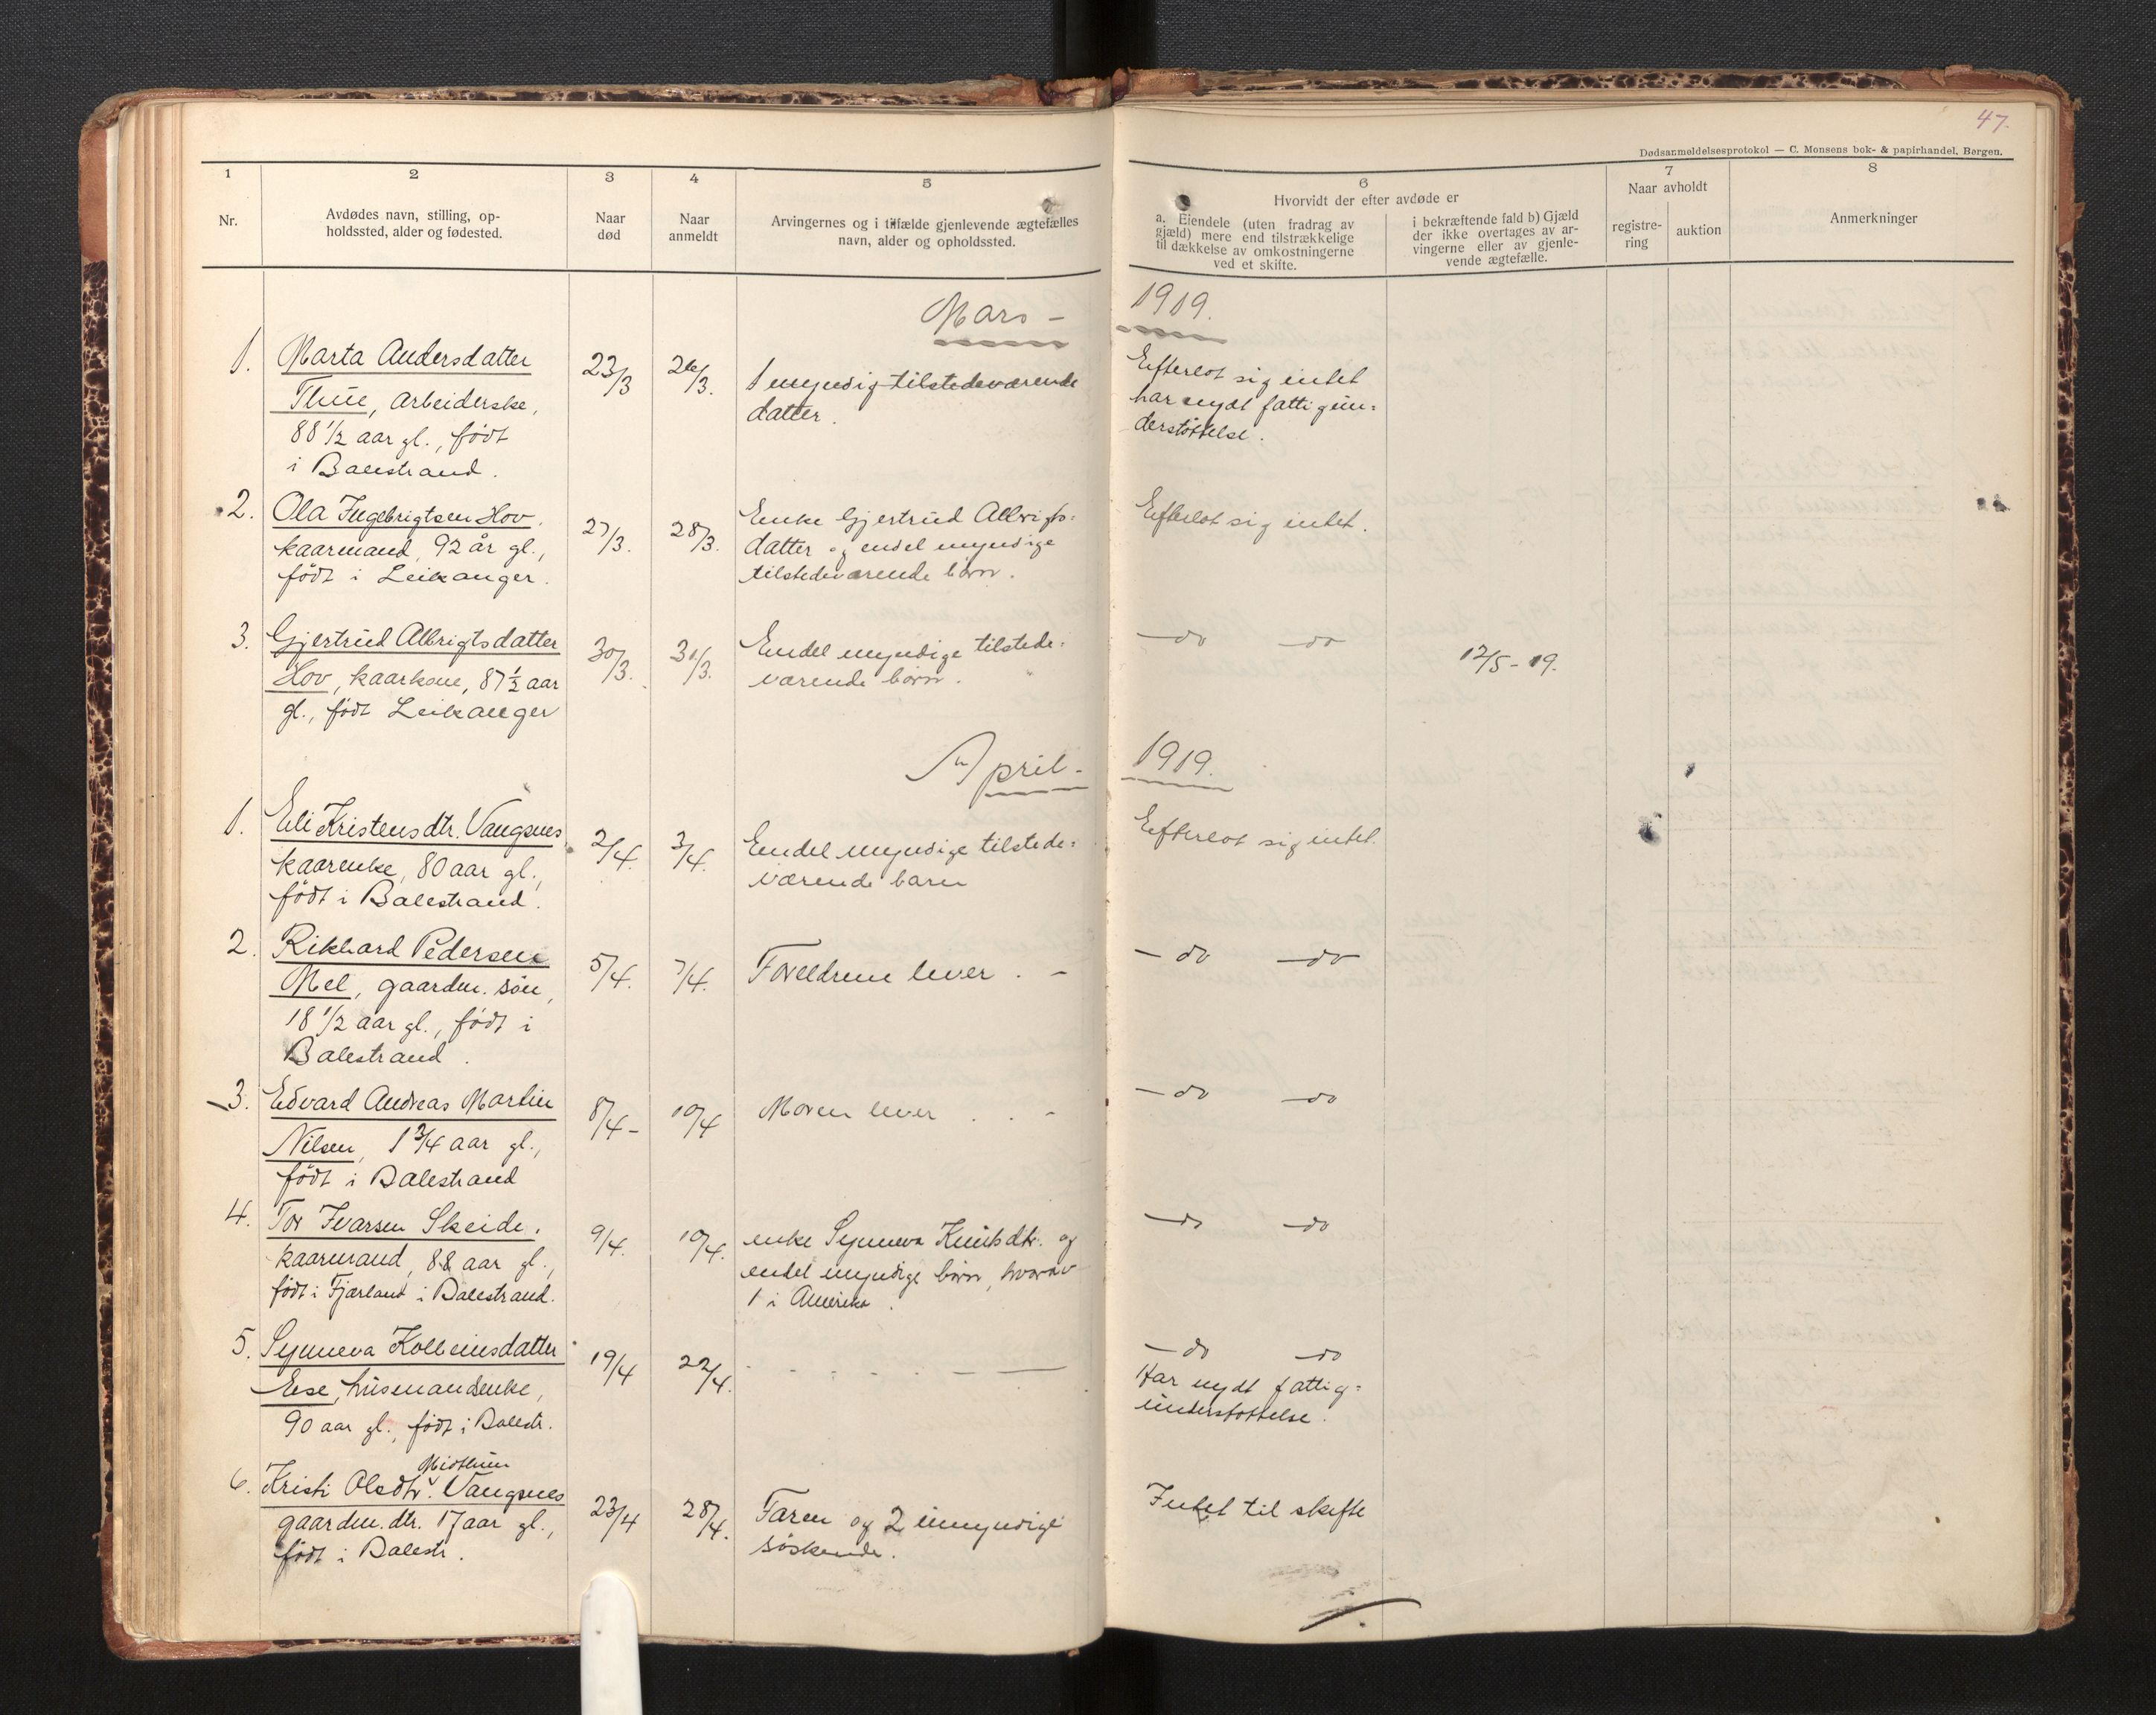 47.
Dødsanmeldelsesprotokol — C. Monsens bok- & papirhandel, Bergen.
1
2
3
4
5
6
7
8
Nr.
Avdødes navn, stilling, op-
holdssted, alder og fødested.
Naar
død
Naar
anmeldt
Arvingernes og i tilfælde gjenlevende ægtefælles
navn, alder og opholdssted.
Hvorvidt der efter avdøde er
a. Eiendele (uten fradrag av
gjæld) mere end tilstrækkelige
til dækkelse av omkostningerne
ved et skifte.
i bekræftende fald b) Gjæld
der ikke overtages av ar-
vingerne eller av gjenle-
vende ægtefælle.
Naar avholdt
registre-
ring
auktion
Anmerkninger
Mars - 1919.
1. Marta Andersdatter
Thue, Arbeiderske,
88 1/2 aar gl., født
i Balestrand.
23/3
26/3.
1 myndig tilstedeværende
datter.
Efterlot sig intet
har nydt fattigun-
derstøttelse.
2. Ola Ingebrigtsen Hov,
kaarmand, 92 år gl.,
født i Leikanger.
27/3.
28/3.
Enke Gjertrud Albrigts-
datter og endel myndige
tilstedeværende børn.
Efterlot sig intet.
3. Gjertrud Albrigtsdatter
Hov, kaarkone, 87 1/2 aar
gl., født Leikanger
30/3.
31/3.
Endel myndige tilstede-
værende børn.
— do — do
12/5-19.
April - 1919.
1. Eli Kristensdtr. Vangsnes,
kaarenke, 80 aar gl.,
født i Balestrand.
2/4.
3/4.
Endel myndige tilstede-
værende barn
Efterlot sig intet.
2. Rikhard Pedersen
Mel, gaardm. søn,
18 1/2 aar gl., født i
Balestrand.
5/4.
7/4.
Foreldrene lever. -
— do — do
3. Edvard Andreas Martin
Nilsen, 1 3/4 aar gl.,
født i Balestrand
8/4-
10/4
Moren lever . -
— do — do
4. Tor Ivarsen Skeide,
kaarmand, 88 aar gl.,
født i Fjærland i Balestrand.
9/4.
10/4.
enke Synneva Knutsdtr. og
endel myndige børn, hvorav
1 i Amerika.
— do — do
5. Synneva Kolbeinsdatter
Ese, husmandsenke,
90 aar gl., født i Balestr.
19/4
22/4.
— do — do
Har nydt fattig-
understøttelse.
Midtun
6. Kristi Olsdtr. Vangsnes
gaardm. dtr. 17 aar gl.,
født i Balestr.
23/4
28/4.
Faren og 2 umyndige
søskende.
Intet til skifte